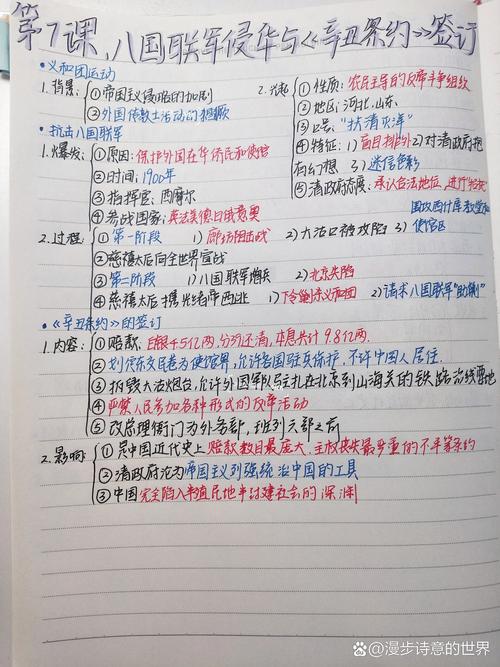 第7课,八国联军侵华与《辛丑条约》签订
•义和团运动
1.背景:①帝国主义侵略的加剧
②外国传教士活动的猖獗
2.兴起:①性质:农民主导的反帝斗争组织
②地区:河北、山东
③口号:"扶清灭洋"
④特征:1)盲目排外2)对清政府抱有幻想3)迷信色彩
⑤清政府态度:承认合法地位,进行"招抚"
•抗击八国联军
1.爆发:①原因:保护外国在华侨民和使馆
②时间:1900年
③指挥官:西摩尔
④参战国家:英法美德日俄意奥
2.过程:①第一阶段 1)廊坊阻击战 2)大沽口被攻陷 3)围攻西什库教堂和使馆区
②慈禧太后向全世界宣战
③第二阶段 1)八国联军增兵 2)北京失陷
④慈禧太后携光绪帝西逃 1)下令剿杀义和团 2)请求八国联军"助剿"
•《辛丑条约》的签订
1.内容:①赔款:白银4.5亿两,分39年还清,本息共计9.8亿两.
②划定东交民巷为使馆界,允许各国驻兵保护,不许中国人居住.
③拆毁大沽炮台,允许外国军队驻扎在北京到山海关的铁路沿线要地
④严禁人民参加各种形式的反帝活动
⑤改总理衙门为外务部,班列六部之前
2.影响:①是中国近代史上赔款数目最庞大、主权丧失最严重的不平等条约
②清政府沦为帝国主义列强统治中国的工具
③中国完全陷入半殖民地半封建社会的深渊
百家号@漫步诗意的世界